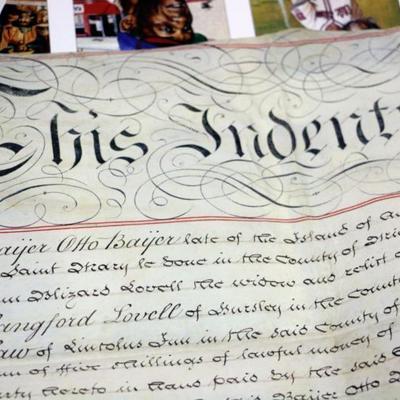 This Indent
aijer Otto Baijer late of the Island of An
Saint Mary le bone in the County of
Blizard Lovell the widow and relict of
Langford Lovell of Bursley in the County
Law of Lincolns Inn in the said County of
of five shillings of lawful money of
hereto in hand paid by the said
Baijer Otto